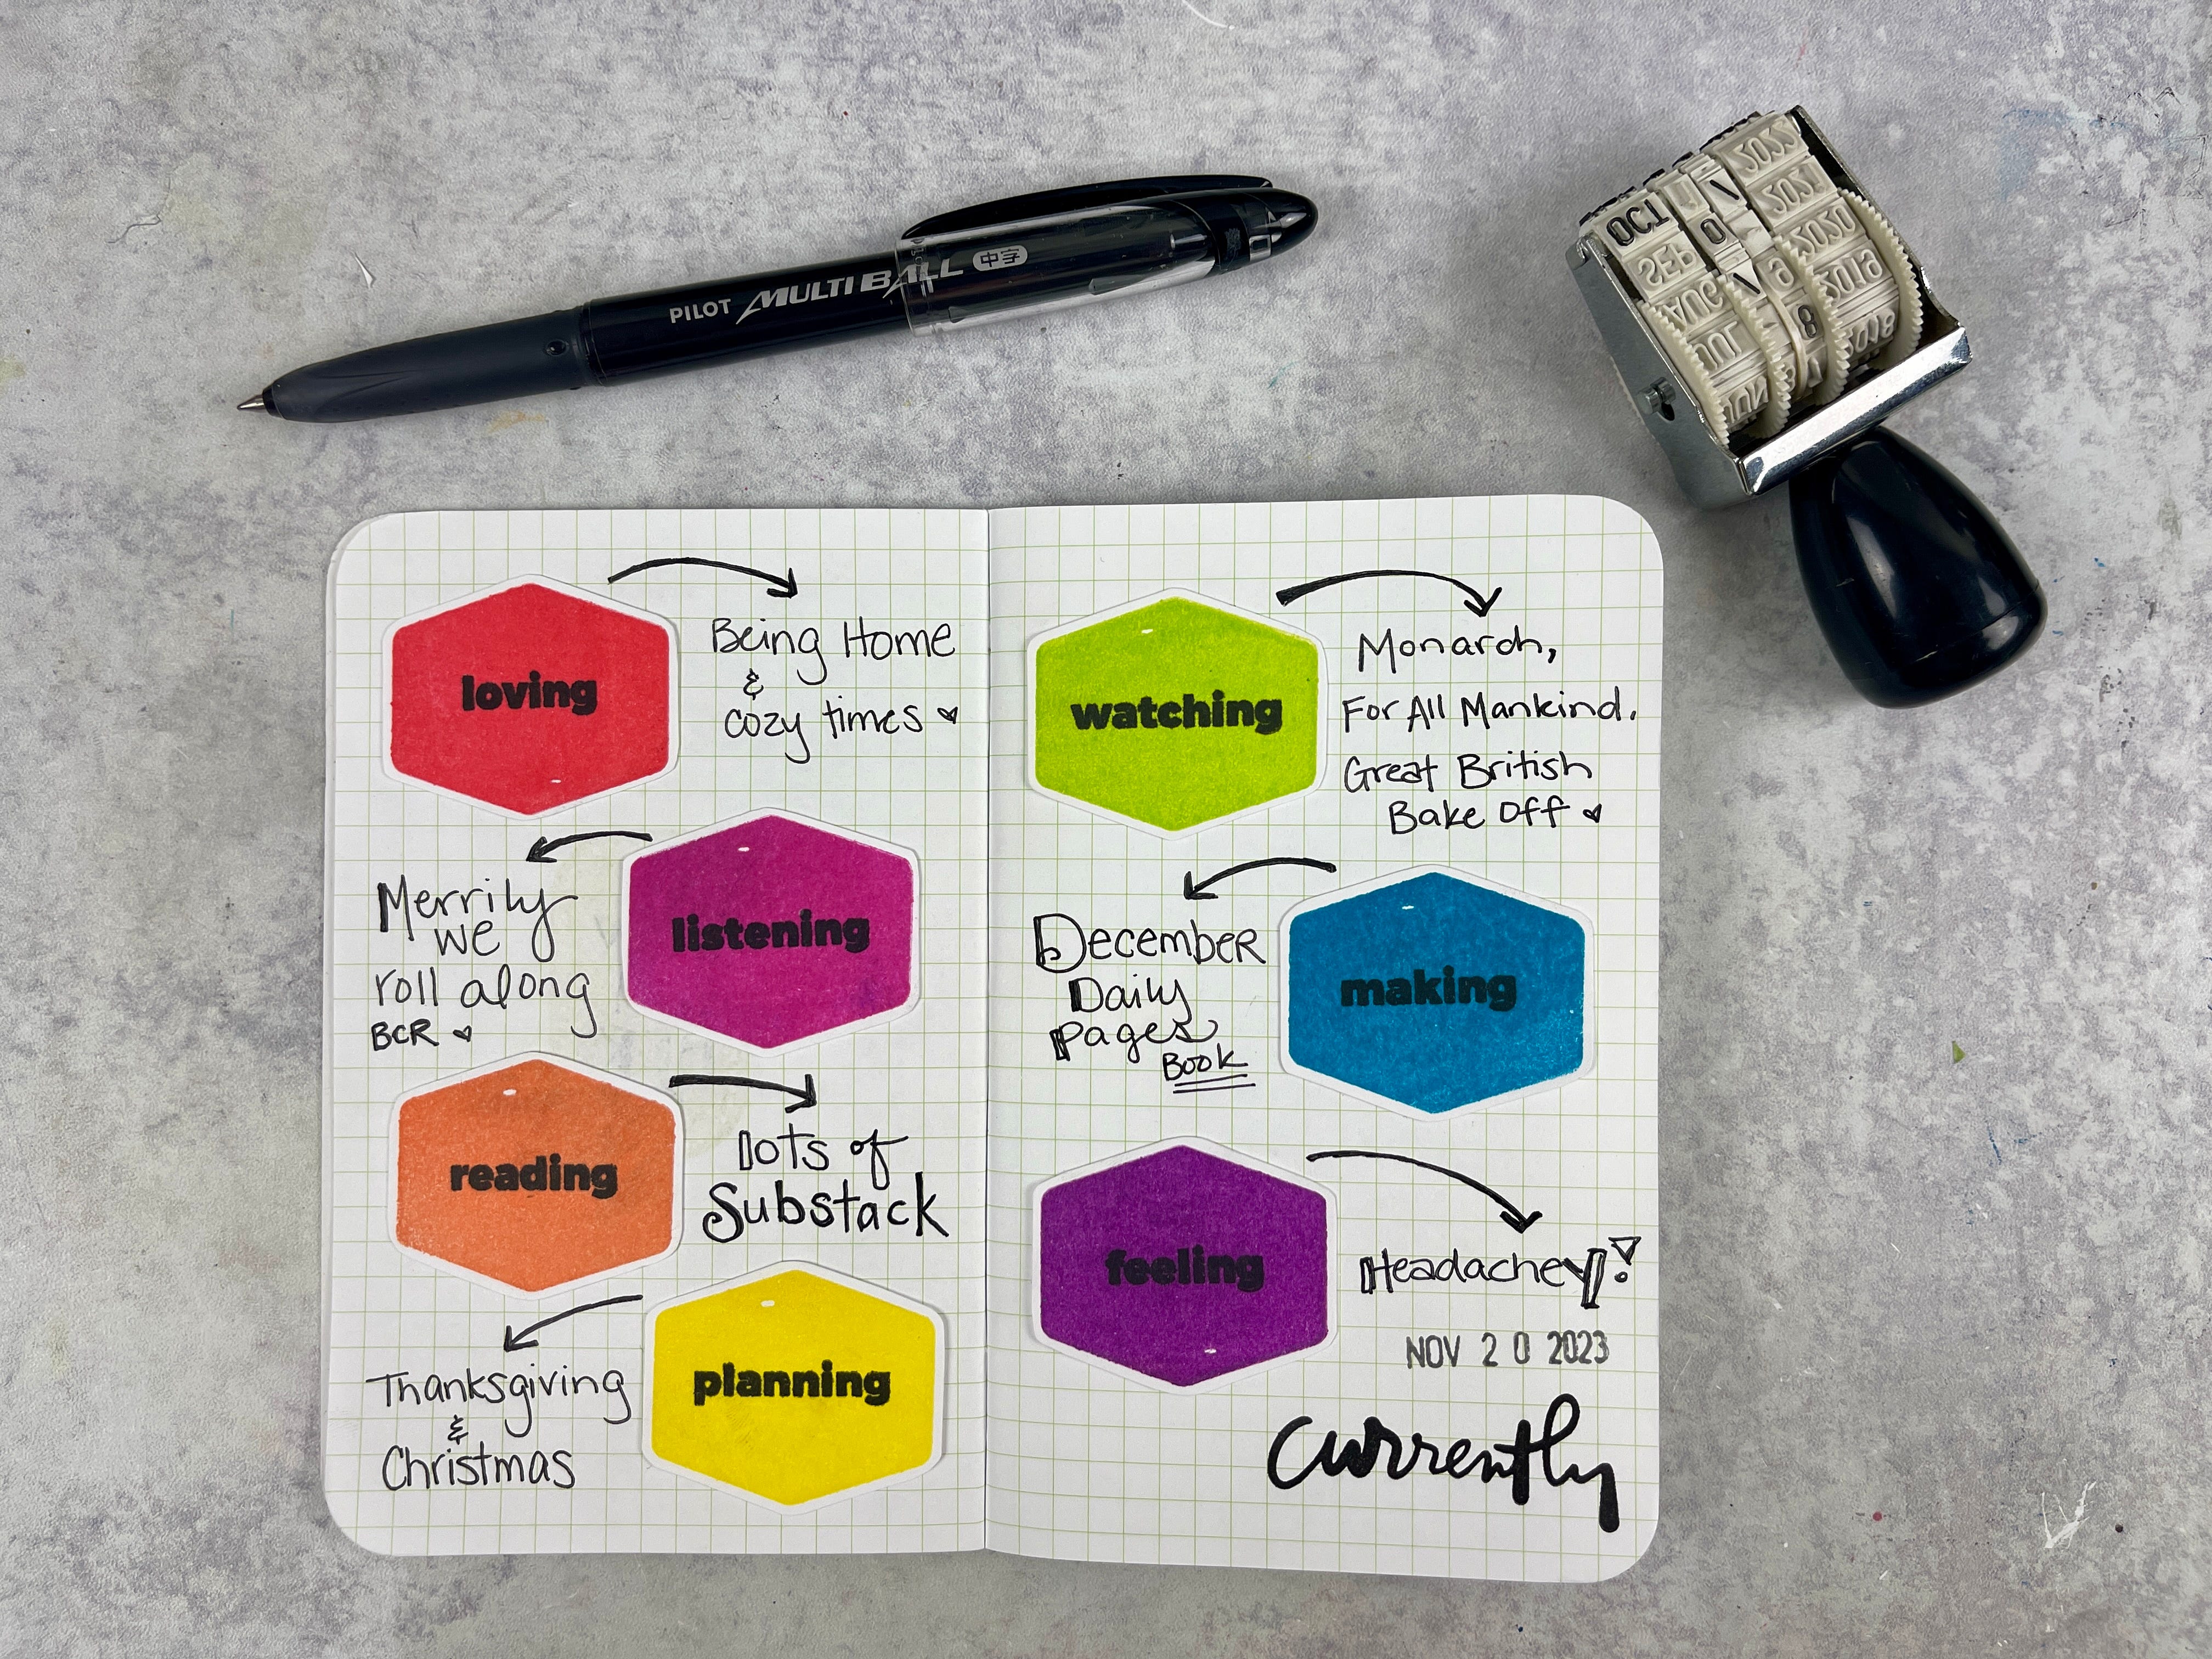 PILOT MULTI BALL 中字
OCT
SEP
AUG
JUL
JUN
2022
2021
2020
2019
2018
loving
Being Home
&
cozy times
listening
Merrily
we
roll along
BCR
reading
lots of
Substack
planning
Thanksgiving
&
Christmas
watching
Monarch,
For All Mankind.
Great British
Bake Off
making
December
Daily
Pages
Book
feeling
Headachey!
NOV 20 2023
currently